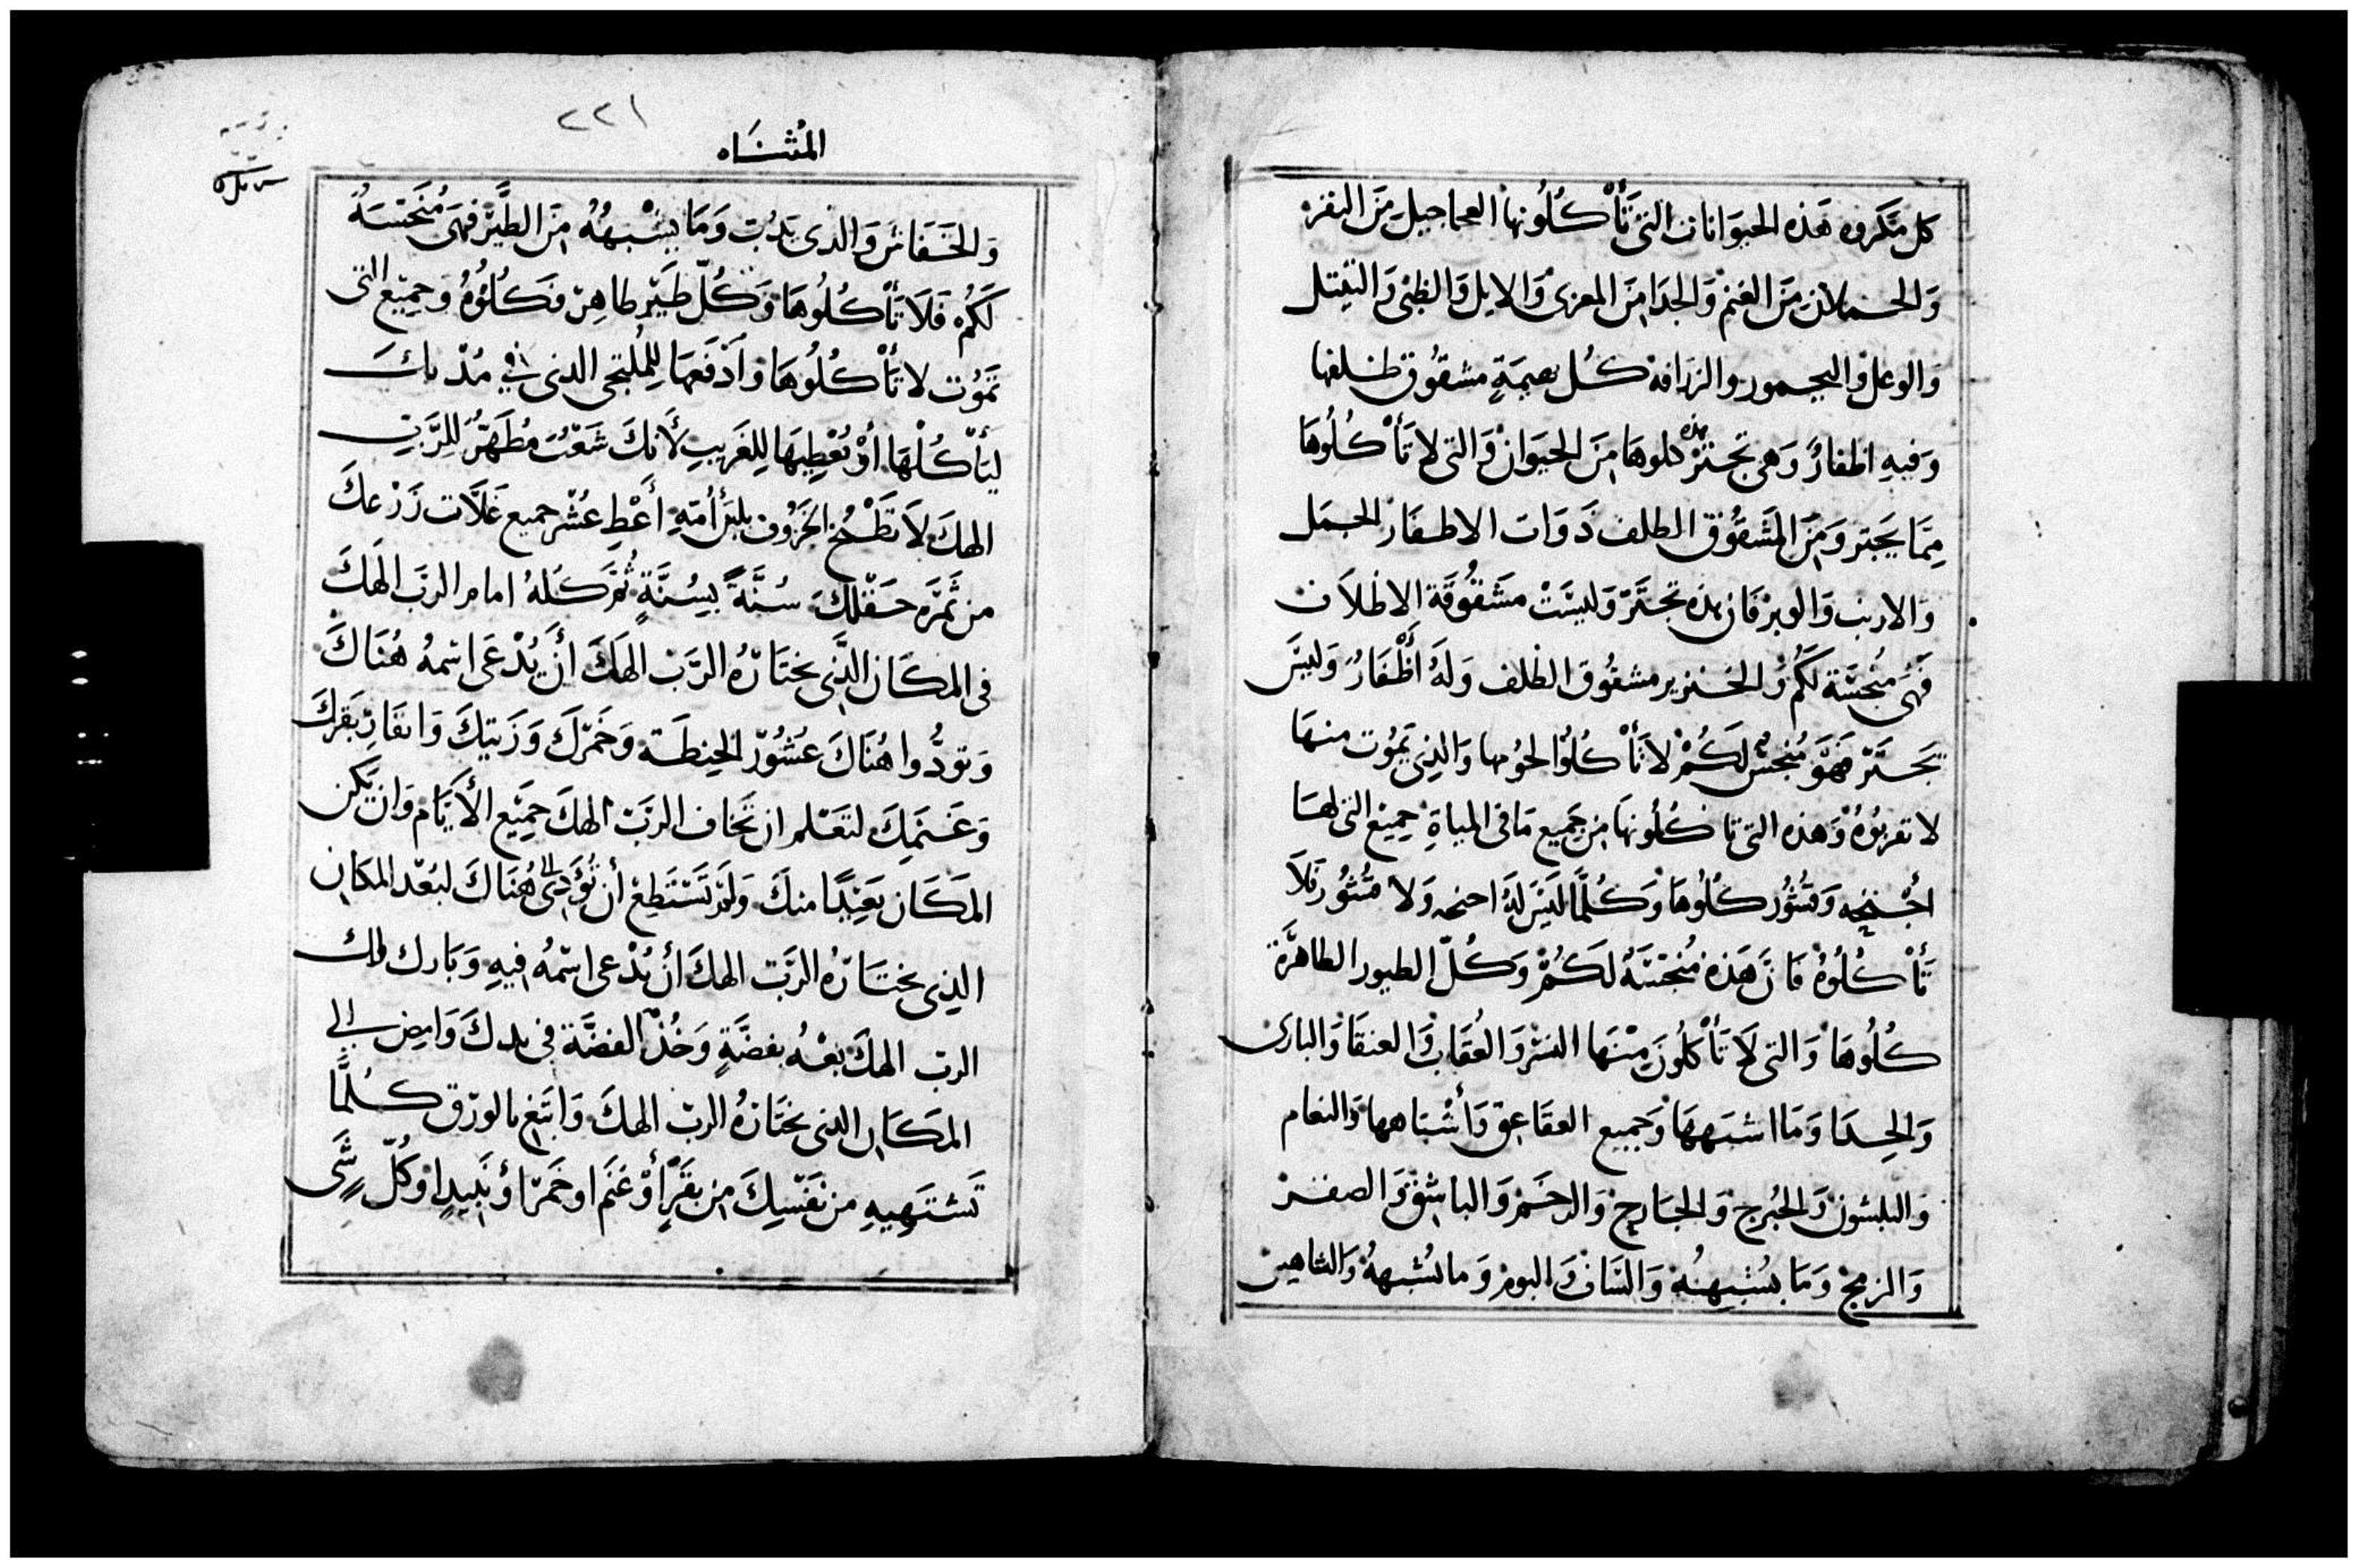 كل مكروه هذه الحيوانات التي تَأْكُلُونها العجاجيل مَن البقر
وَالحملان مَن الغنم وَالجدا مِنَ المعزى وَالايل وَالظبى وَالتيتل
وَالوعل وَاليحمور والزرافه كُل بهيمَةٍ مشقُوق ظلفها
وَفيهِ اظفارٌ وَهى تجتر هذه كلوهَا مِنَ الحيَوَان وَالتى لا تَأْكُلُوهَا
مِمَّا يَجتر وَمِنَ المَشقُوق الظلف ذَوَات الاظفَار الجمَل
وَالارنب وَالوبر فَان هذه تجتَرّ وَليسَتْ مشَقُوقَة الاظلاَف
فَهْى مُنجسَّة لكُم وَالخنزير مشقُوق الظلف وَلَهُ أَظْفَارٌ وَليسَ
يَجتَرّ فهَوَ مُنجسٌ لَكُمْ لاَ تَأْكُلُوا لحُومها وَالذِى يَمُوت منهَا
لا تقربوُهُ وَهذه التى تا كُلُونهَا مِن جَمِيع مَا فى المياةِ جمِيع التى لهَا
أجْنحِه وَقشُور كُلُوهَا وَكُلمَّا لَيسَ لَهُ اجنحه وَلاَ قشُور فَلاَ
تَأْ كُلُوهُ فَا نَّ هَذه مُنجسَّةُ لَكُمْ وَكُلّ الطيور الطاهرَّة
كُلُوهَا وَالتى لاَ تَأْكلُونَ مِنْهَا النسْر وَالعُقَاب وَالعنقَا وَالبازى
وَالحِدَا وَمَا اشبَههَا وَجميع العقَاعِق وَأَشْبَاهها وَالنعام
وَالبلشون وَالحُبرج وَالجَارح وَالرخَمْ وَالباشِقْ وَالصقرْ
وَالزمج وَمَا يُشبِههُ وَالسَاف وَالبوم وَما يُشبههُ وَالشاهين
٢٢١
المُثنَاه
وَالخفَفَاش وَالذى يَدُب وَمَا يشْبههُ مِنَ الطَّيْر فهَى مُنَجسَةُ
لَكُم فَلاَ تَأْكُلُوهَا وَكُلّ طَيْرِ طاهِرٍ فَكُلُوُهُ وَجمِيْع التى
تمَوُت لا تَأْكُلُوهَا وَأَدْفَعهَا لِلمُلتجى الذى فِي مُدْنكَ
ليَأْكُلْهَا أوْ تُعْطِيهَا لِلغَريبِ لأَنكَ شَعْبٌ مُطَهَّرٌ لِلرَّبِّ
الهكَ لاَ تَطْبُخ الخَرُوف بلبَن أُمِّهِ أَعْطِ عُشْر جميع غَلاَّت زَرْعكَ
من ثَمَرَه حَقْلكَ سُنَّةً بِسُنَّةٍ ثُمَّ كُلهُ امامر الربَ الَهكَ
فى المكَان الذَّى يختَارهُ الرَّبّ الهَكَ أَن يُدْعَى اسْمهُ هُنَاكَ
وَتودُّوا هُنَاكَ عُشُورَ الحِنطَة وَخَمْركَ وَزَيتِكَ وَابقَار بَقرِكَ
وَغَنمَكِ لتعَلم ان تَخاف الرَبّ الهكَ جمِيْع الأَيَّام وَان يَّكن
المَكَان بَعِيْدًا منكَ وَلَمْ تَسْتَطِعْ أن تُؤَدِى الى هُنَاكَ لبُعْد المكَان
الذِى يختَارهُ الرَّبّ الهكَ أن يُدْعى اسْمُهُ فيهِ وَبَارك لك
الرب الهكَ بعْهُ بفضَّةٍ وَخُذْ الفضَّة فى يدكَ وَامِضِ إلى
المَكَان الذى يختَارهُ الربّ الهكَ وَابتَغِ بالورَق كُلمَّا
تَشتَهِيهِ من نَفْسِكَ مِن بقَرٍ أَوْ غنَم او خَمرًا أوْ نَبِيدٍا وَكُلّ شَى